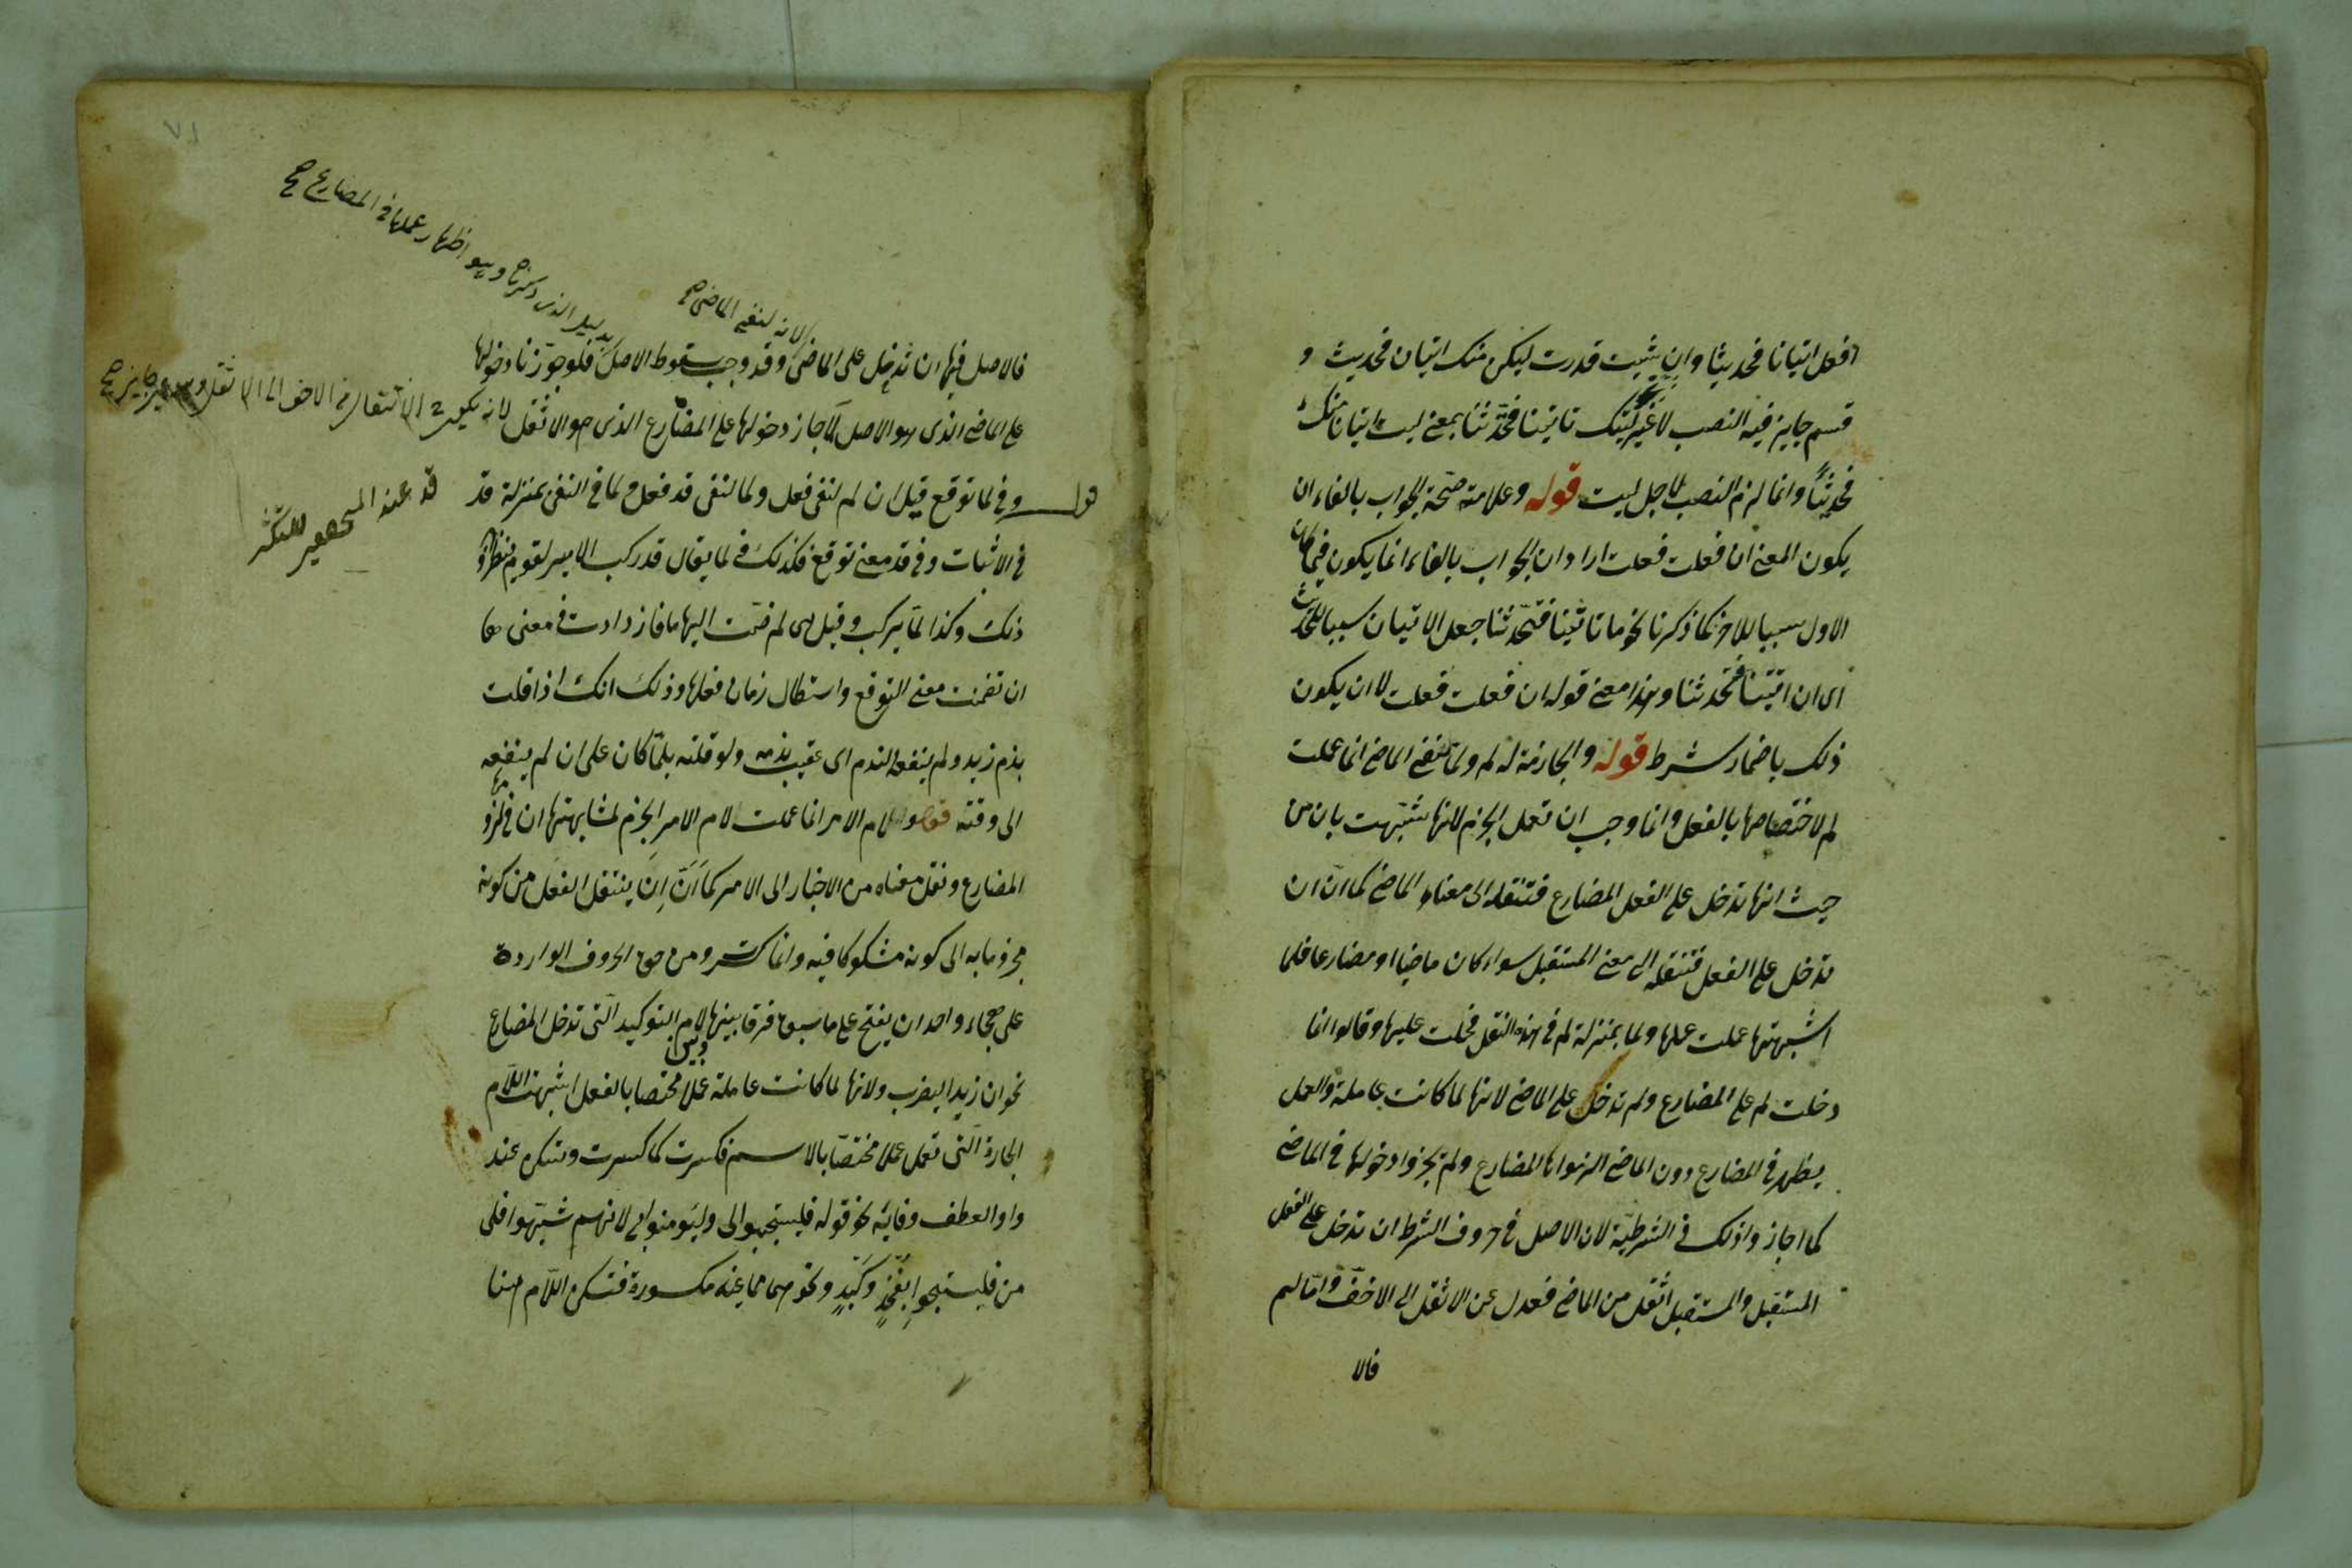 افعل اتيانا فحديثا وان شئت قدرت ليكن منك اتيان فحديث و
قسم جايز فيه النصب لا غير ليتك تاتينا فتحدثنا بمعنى ليت اتيانا منك
فحديثا وانما لزم النصب لاجل ليت قوله وعلامة صحة الجواب بالفاء ان
يكون المعنى ان فعلت فعلت اراد ان الجواب بالفاء انما يكون فيما كان
الاول سببا للاخر كما ذكرنا نحو ما تاتينا فتحدثنا جعل الاتيان سببا للتحدث
اى ان اتيتنا فتحدثنا وهذا معنى قوله ان فعلت فعلت لا ان يكون
ذلك باضمار شرط قوله والجازمة له لم ولما لنفى الماضى انما عملت
لم لاختصاصها بالفعل وانما وجب ان تعمل الجزم لانها شبهت بان من
حيث انها تدخل على الفعل المضارع فتنقله الى معناه الماضى كما ان ان
تدخل على الفعل فتنقله الى معنى المستقبل سواء كان ماضيا او مضارعا فلما
اشبهتها عملت عملها ولما بمنزلة لم فى هذه النقل فحملت عليها وقالوا انما
دخلت لم على المضارع ولم تدخل على الماضى لانها لما كانت عاملة والعمل
يظهر فى المضارع دون الماضى الزموها المضارع ولم يجوزوا دخولها فى الماضى
كما اجازوا ذلك فى الشرطية لان الاصل فى حروف الشرط ان تدخل على الفعل
المستقبل والمستقبل اثقل من الماضى فعدل عن الاثقل الى الاخف واما لم
فالا
٧١
بدليل الذى ذكرناه وهو اظهار عملها فى المضارع صح
لانه لنفى الماضى صح
فالاصل فيها ان تدخل على الماضى وقد وجب سقوط الاصل فلو جوزنا دخولها
على الماضى الذى هو الاصل لما جاز دخولها على المضارع الذى هو الاثقل لانه يكون ح الانتقال من الاخف الى الاثقل وهو غير جايز صح
قوله وفى لما توقع قيل ان لم لنفى فعل ولما لنفى قد فعل ولما فى النفى بمنزلة قد
فى الاثبات وفى قد معنى توقع فكذلك فى لما يقال قد ركب الامير لقوم ينتظروا
ذلك وكذا لما يركب وقيل هى لم ضمت اليها ما فازدادت فى معنى ها
ان تضمنت معنى التوقع واستطال زمان فعلها وذلك انك اذا قلت
ندم زيد ولم ينفعه الندم اى عقيب ندمه ولو قلته بلما كان على ان لم ينفعه
الى وقته قوله ولام الامر انما عملت لام الامر الجزم لمشابهتها ان فى لزومها
المضارع ونقل معناه من الاخبار الى الامر كما ان ان ينتقل الفعل من كونه
مجزوما به الى كونه مشكوكا فيه وانما كسر ومن حق الحروف الواردة
على هجاء واحد ان يفتح على ما سبق فرقا بينها وبين لام التوكيد التى تدخل المضارع
نحو ان زيدا ليضرب ولانها لما كانت عاملة عملا مختصا بالفعل اشبهت اللام
الجارة التى تعمل عملا مختصا بالاسم فكسرت كما كسرت وتسكن عند
واو العطف وفائه نحو قوله فليستجيبوا لى وليؤمنوا بى لانهم شبهوا فلى
من فليستجيبوا بفخذ وكبد ونحوهما مما عينه مكسورة فتسكن اللام هنا